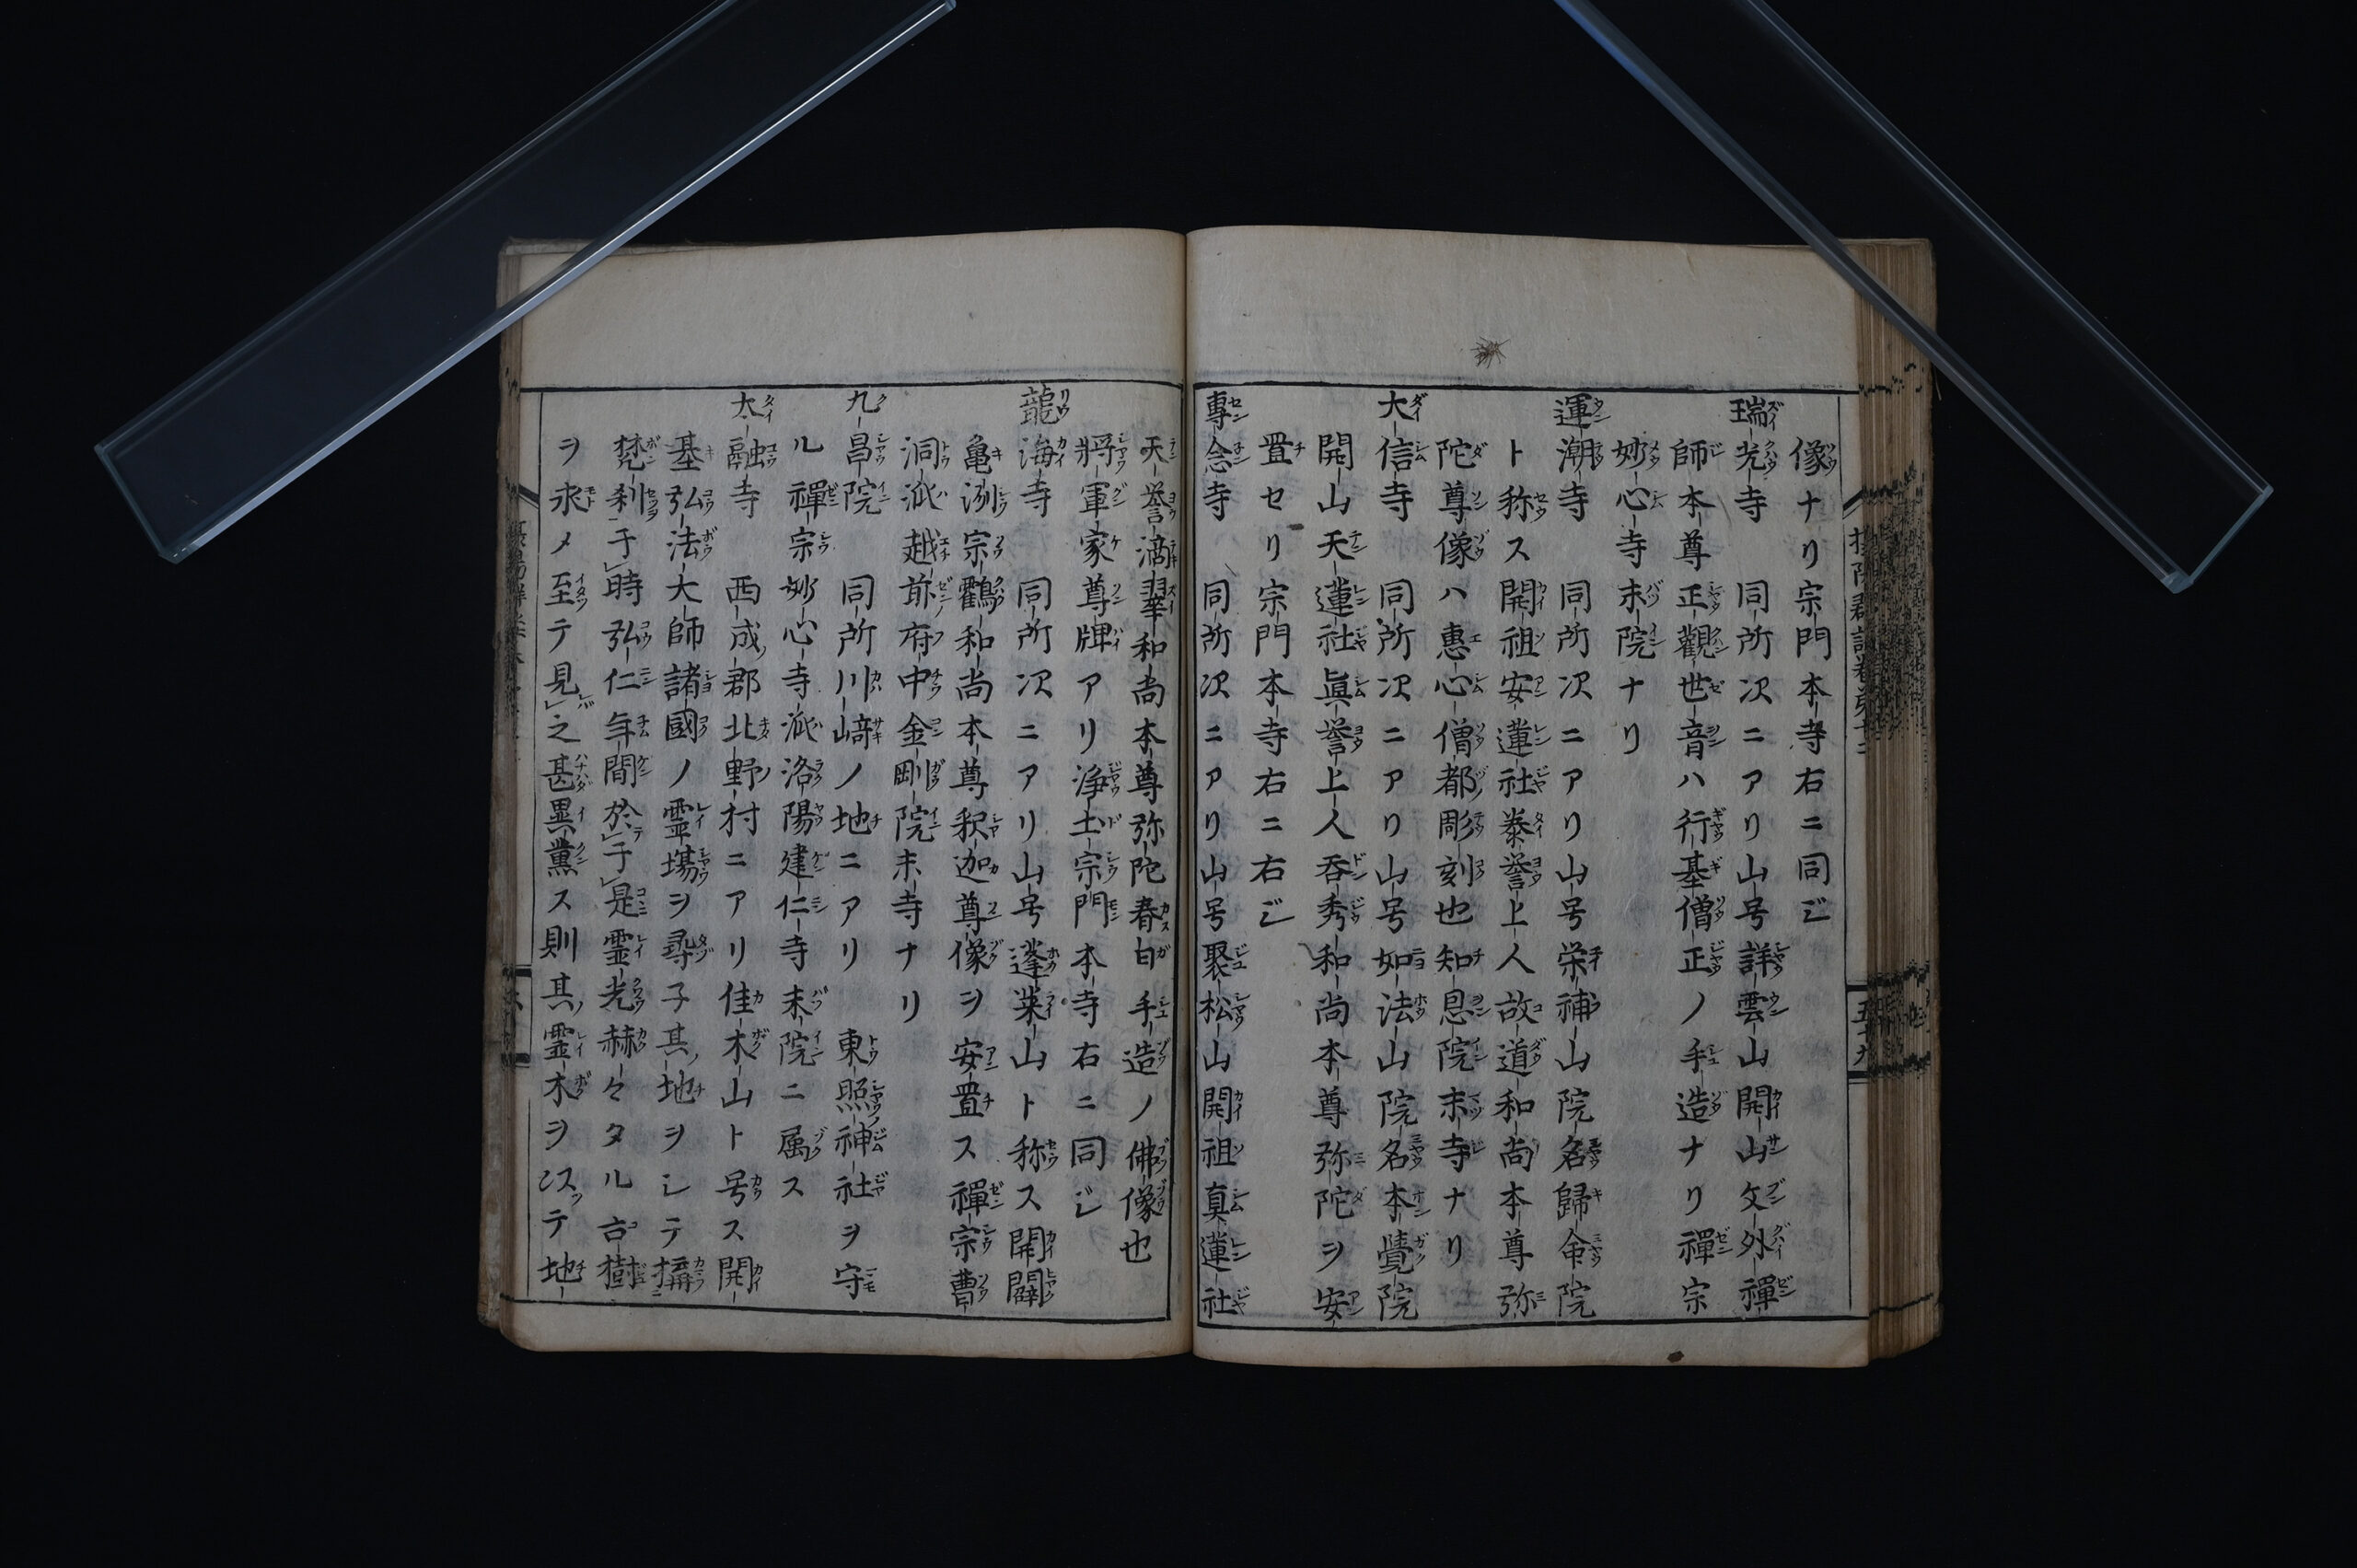 像ナリ宗門本寺右ニ同ジ
瑞光寺 同所次ニアリ山号詳雲山開山文外禪
師本尊正觀世音ハ行基僧正ノ手造ナリ禪宗
妙心寺末院ナリ
運潮寺 同所次ニアリ山号栄補山院名歸命院
ト称ス開祖安蓮社泰誉上人故道和尚本尊弥
陀尊像ハ惠心僧都彫刻也知恩院末寺ナリ
大信寺 同所次ニアリ山号如法山院名本覺院
開山天蓮社眞誉上人呑秀和尚本尊弥陀ヲ安
置セリ宗門本寺右ニ右ジ
專念寺 同所次ニアリ山号聚松山開祖真蓮社
天誉滴翠和尚本尊弥陀春日手造ノ佛像也
將軍家尊牌アリ浄土宗門本寺右ニ同ジ
龍海寺 同所次ニアリ山号蓬莱山ト称ス開闢
亀洌宗鸖和尚本尊釈迦尊像ヲ安置ス禪宗曹
洞派越前府中金剛院末寺ナリ
九昌院 同所川﨑ノ地ニアリ 東照神社ヲ守
ル禪宗妙心寺派洛陽建仁寺末院ニ属ス
大融寺 西成郡北野村ニアリ佳木山ト号ス開
基弘法大師諸國ノ霊塲ヲ尋子其地ヲシテ搆
梵刹于時弘仁年間於于是霊光赫々タル古樹
ヲ求メ至テ見之甚異薫ス則其霊木ヲ以テ地
五十九